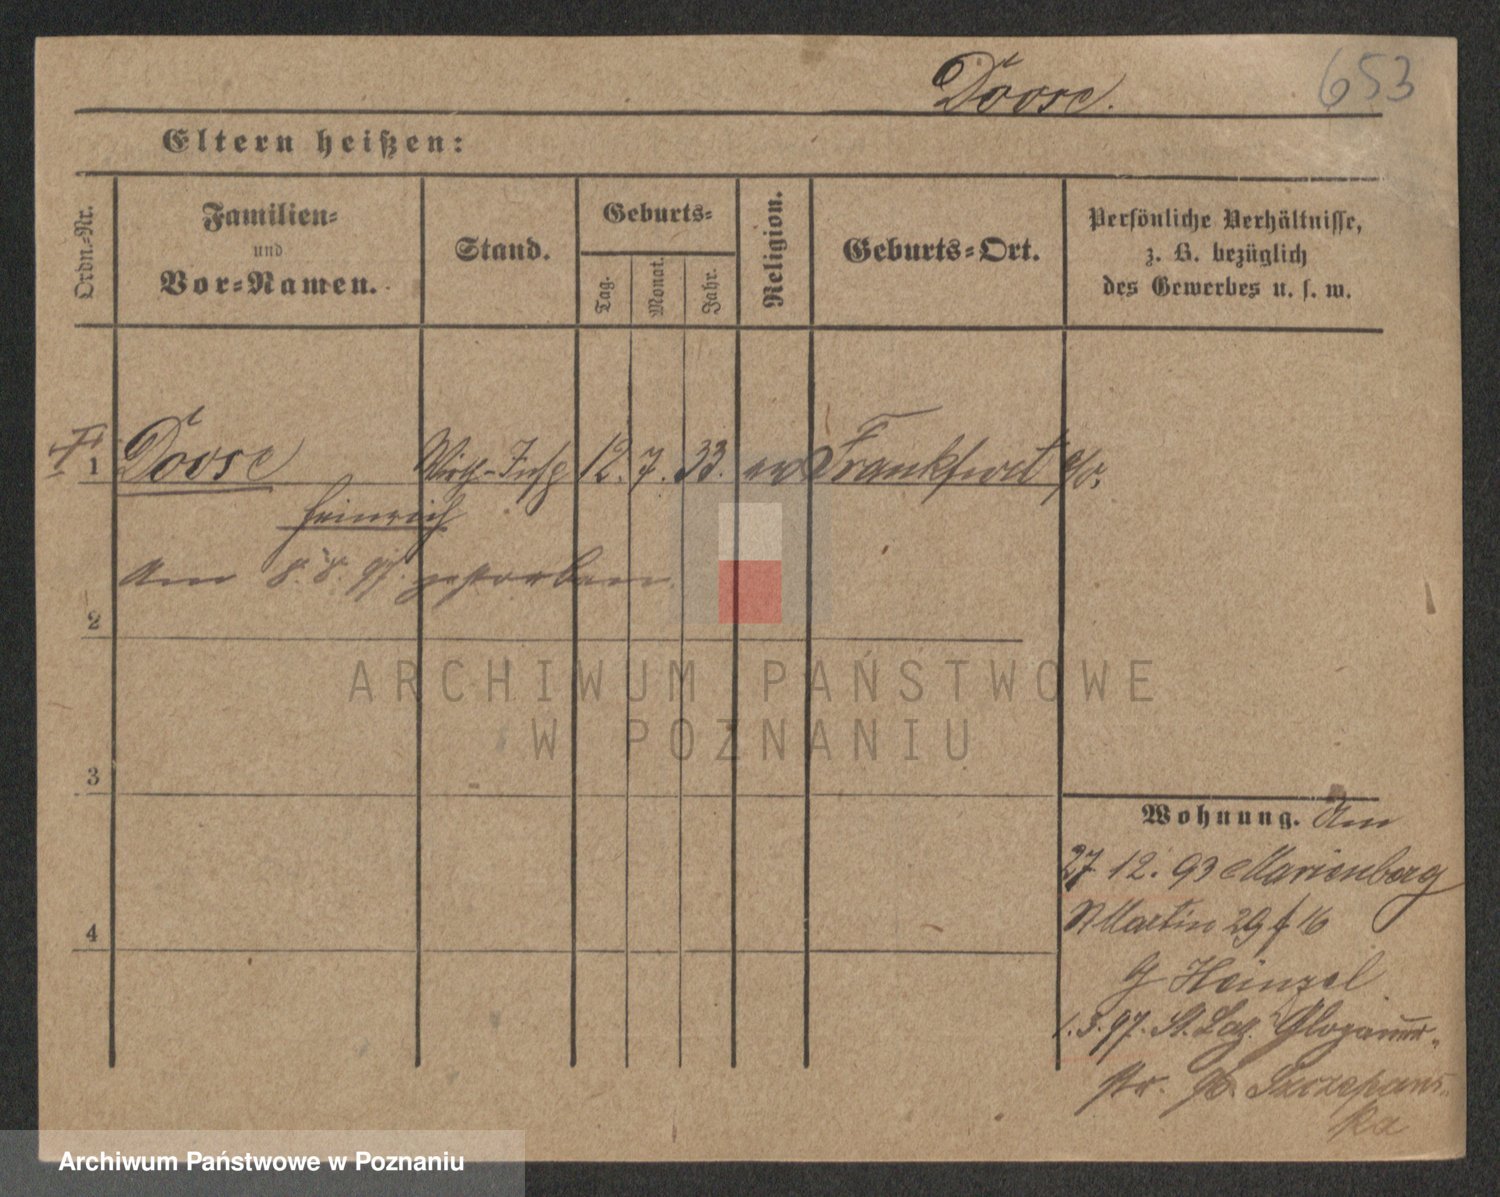 Doose.
653
Eltern heißen:
Ordn.-Nr.
Familien-
und
Vor-Namen.
Stand.
Geburts-
Tag.
Monat.
Jahr.
Religion.
Geburts-Ort.
Persönliche Verhältnisse,
z. B. bezüglich
des Gewerbes u. s. w.
1
Doose Wirth-Insp 12. 7. 33. ev Frankfurt a/O.
Heinrich
Am 8. 8. 97. gestorben.
2
ARCHIWUM PAŃSTWOWE
W POZNANIU
3
Wohnung. Am
27 12. 93 Marienberg
St Martin 29 16
Heinzel
1. 3. 97. St. Laz. Glogauer-
str. Szczepans-
ka
4
Archiwum Państwowe w Poznaniu